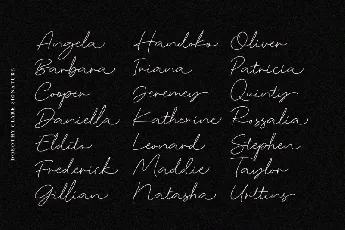 Angela Handoko Oliver
Barbara Iriana Patricia
Cooper Jeremey Quinty
Daniella Katherine Rossalia
Eldito Leonard Stephen
Frederick Maddie Taylor
Gillian Natasha
DOROTHY CLARK SIGNATURE